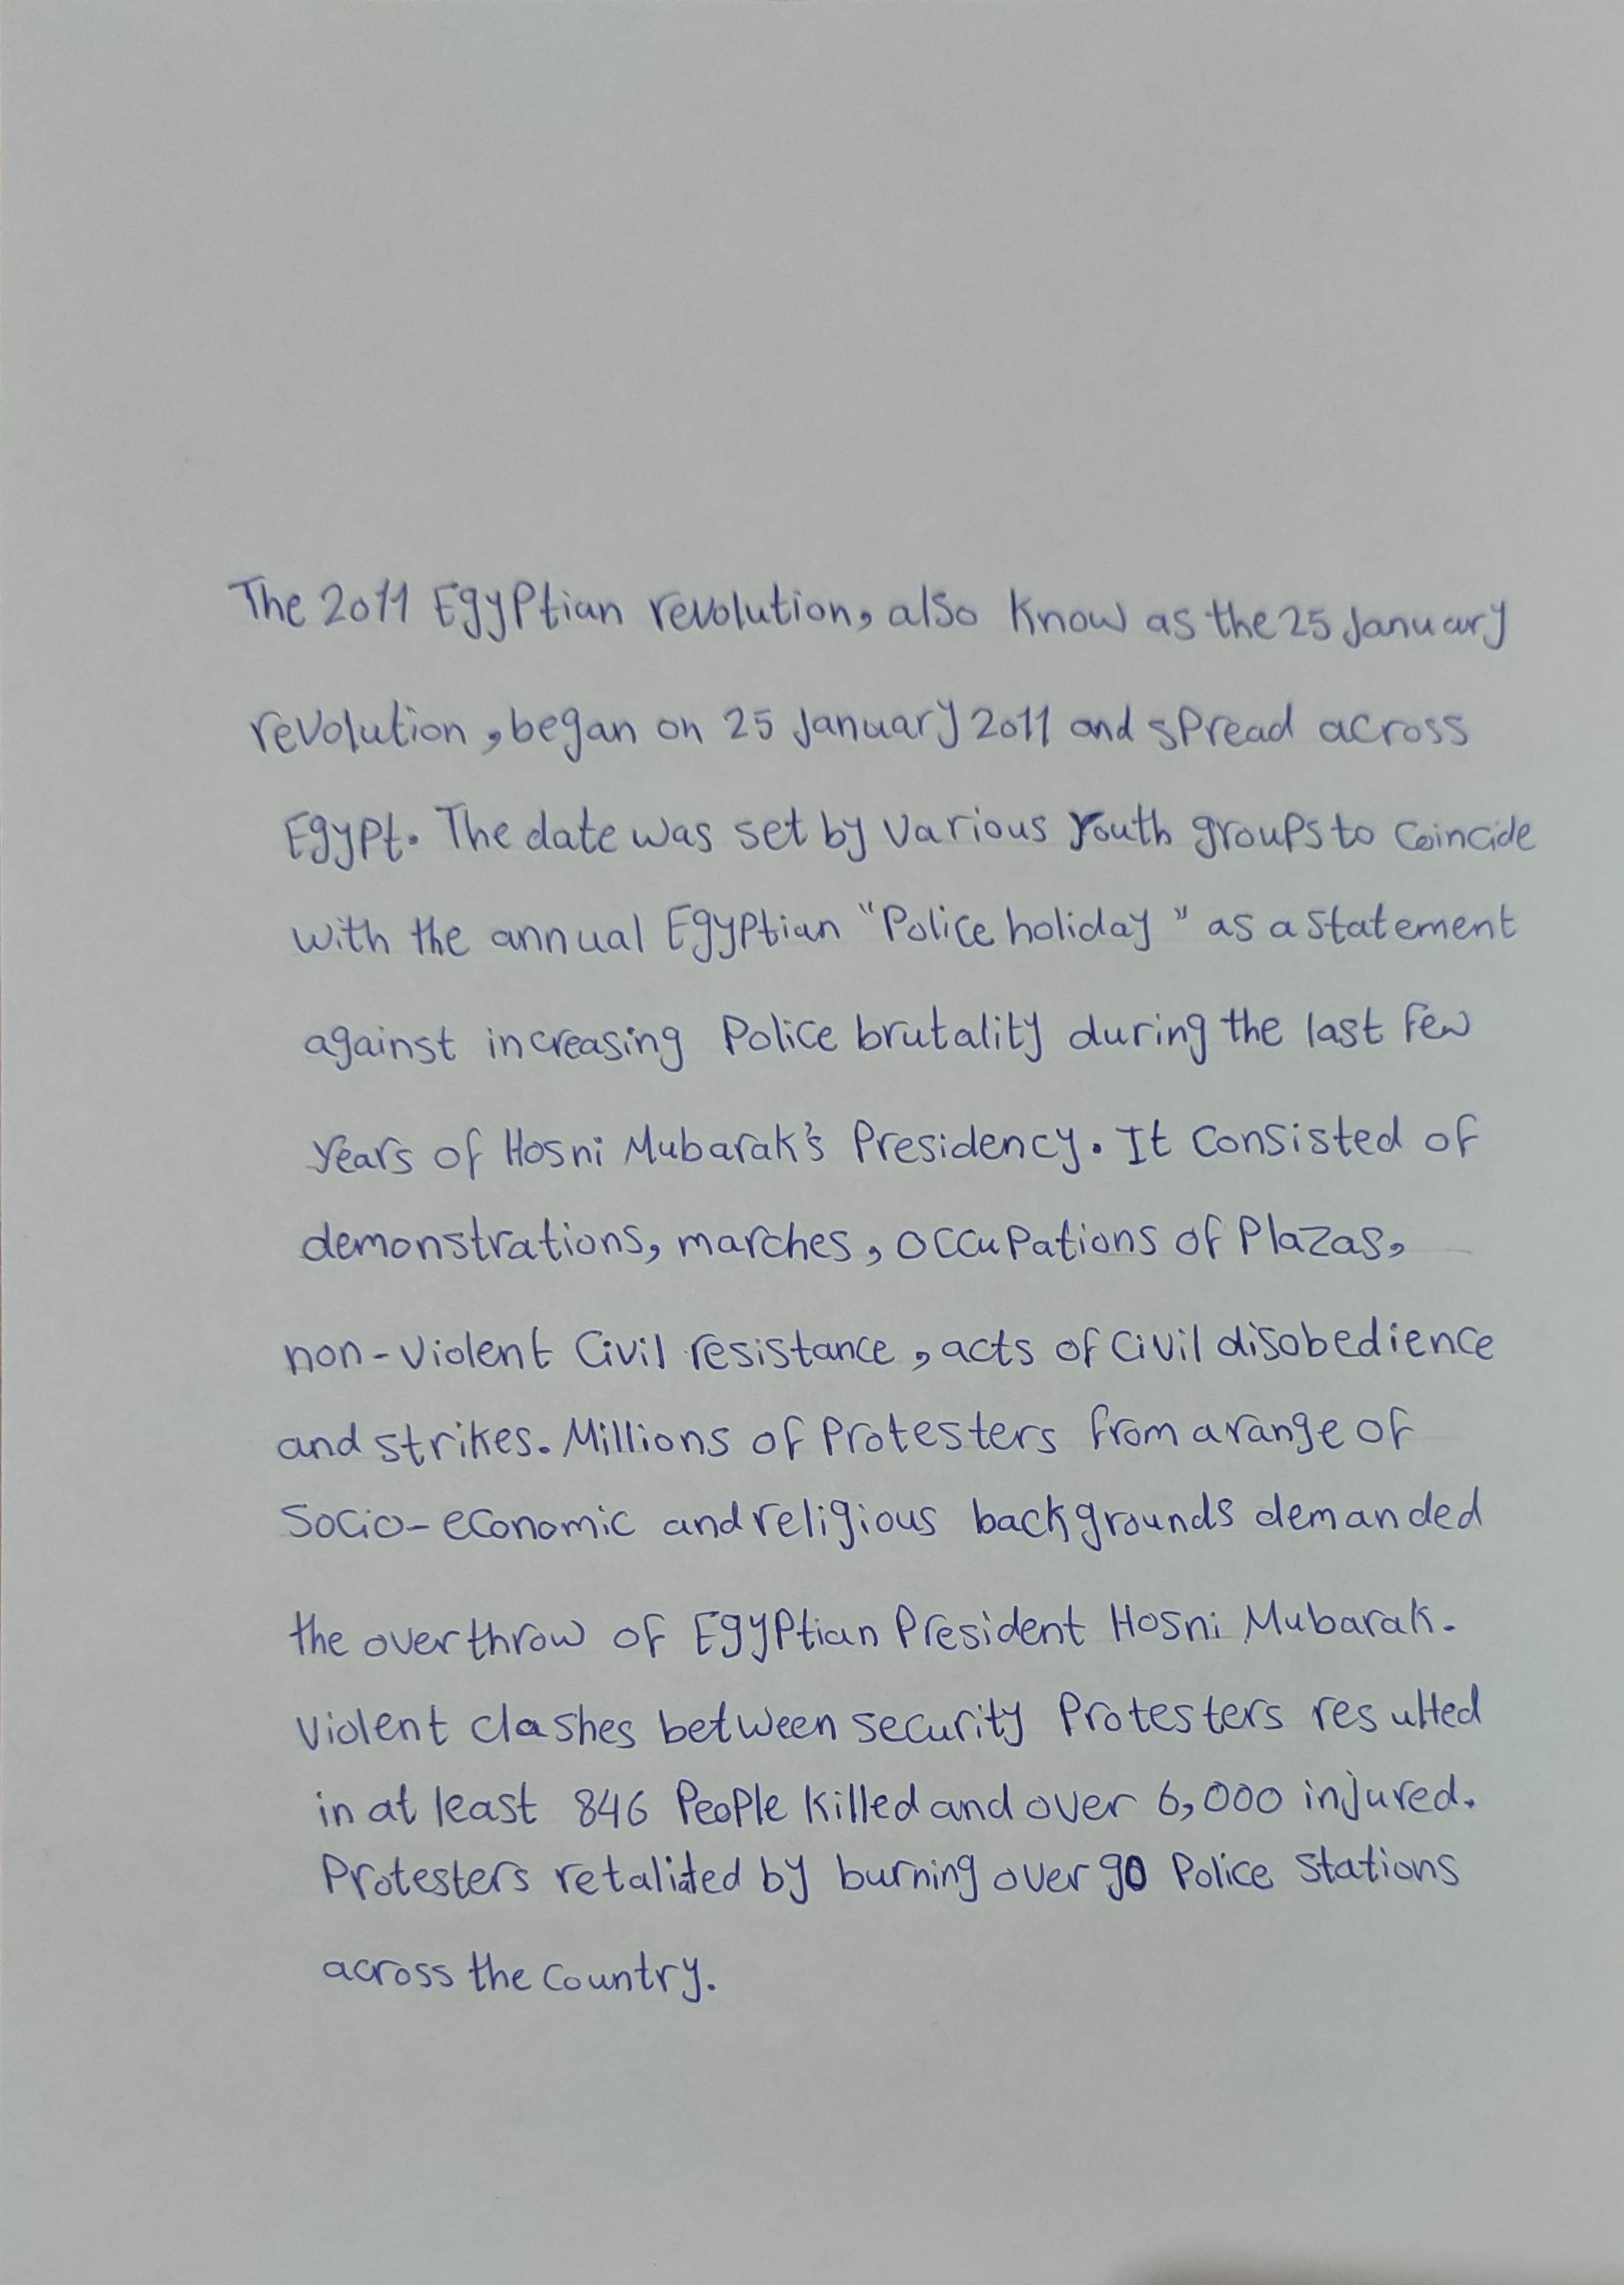 The 2011 Egyptian revolution, also know as the 25 January
revolution, began on 25 January 2011 and spread across
Egypt. The date was set by various youth groups to coincide
with the annual Egyptian "Police holiday" as a statement
against increasing Police brutality during the last few
years of Hosni Mubarak's Presidency. It consisted of
demonstrations, marches, occupations of Plazas,
non-violent Civil resistance, acts of civil disobedience
and strikes. Millions of Protesters from a range of
Socio-economic and religious backgrounds demanded
the overthrow of Egyptian President Hosni Mubarak.
Violent clashes between security Protesters resulted
in at least 846 People killed and over 6,000 injured.
Protesters retaliated by burning over 90 Police stations
across the country.